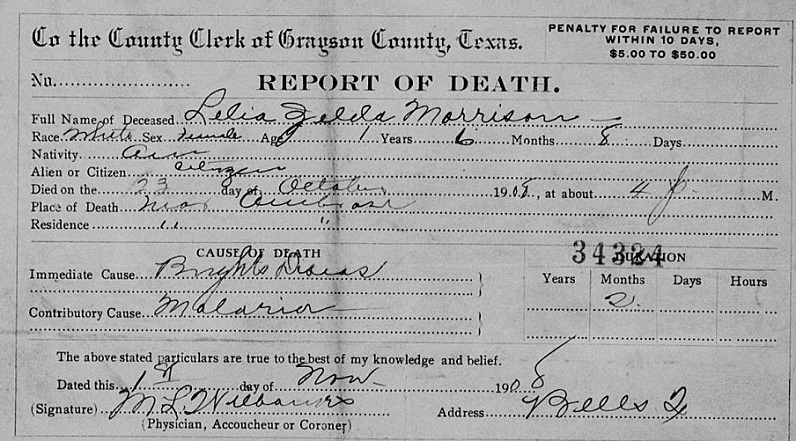 To the County Clerk of Grayson County, Texas.
PENALTY FOR FAILURE TO REPORT
WITHIN 10 DAYS,
$5.00 TO $50.00
No.
REPORT OF DEATH.
Full Name of Deceased Lelia Zelda Morrison
Race White Sex Female Age 1 Years 6 Months 8 Days
Nativity Am
Alien or Citizen Citizen
Died on the 23 day of October 1908, at about 4 P. M.
Place of Death Near Ambrose
Residence " "
CAUSE OF DEATH
34324
DURATION
Immediate Cause Brights Diseas
Years Months Days Hours
2
Contributory Cause Malaria
The above stated particulars are true to the best of my knowledge and belief.
Dated this 1st day of Nov 1908
(Signature) M L Wilbanks Address Bells
(Physician, Accoucheur or Coroner)